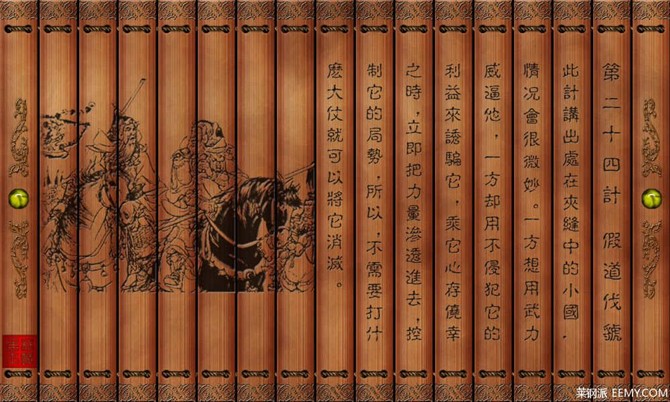 第二十四計 假道伐虢
此計講出處在夾縫中的小國，
情况會很微妙。一方想用武力
威逼他，一方却用不侵犯它的
利益來誘騙它，乘它心存僥幸
之時，立即把力量滲透進去，控
制它的局勢，所以，不需要打什
麽大仗就可以將它消滅。
莱钢派 EEMY.COM